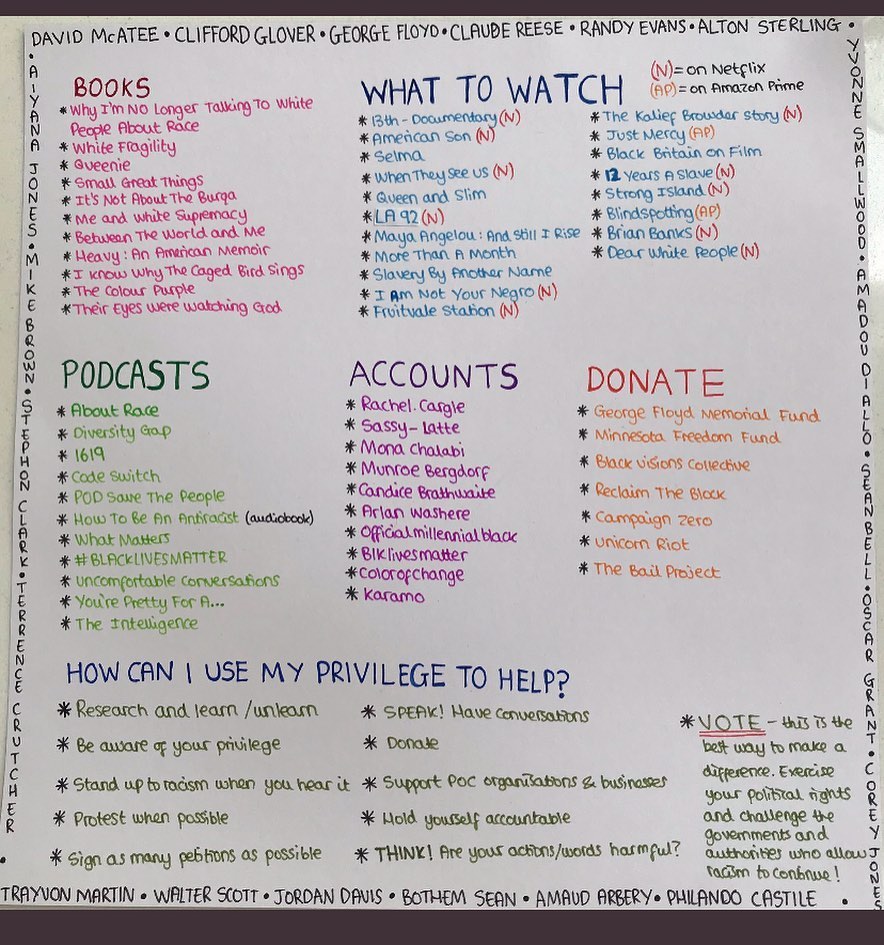 DAVID McATEE • CLIFFORD GLOVER • GEORGE FLOYD • CLAUDE REESE • RANDY EVANS • ALTON STERLING •
• AIYANA JONES • MIKE BROWN • STEPHON CLARK • TERRENCE CRUTCHER •
BOOKS
* Why I'm NO Longer Talking To White
People About Race
* White Fragility
* Queenie
* Small Great Things
* It's Not About The Burqa
* Me and White Supremacy
* Between The World and Me
* Heavy: An American Memoir
* I Know Why The Caged Bird Sings
* The Colour Purple
* Their Eyes Were Watching God
WHAT TO WATCH
(N) = on Netflix
(AP) = on Amazon Prime
* 13th - Documentary (N)
* American Son (N)
* Selma
* When They See Us (N)
* Queen and Slim
* LA 92 (N)
* Maya Angelou: And Still I Rise
* More Than A Month
* Slavery By Another Name
* I Am Not Your Negro (N)
* Fruitvale Station (N)
* The Kalief Browder Story (N)
* Just Mercy (AP)
* Black Britain on Film
* 12 Years A Slave (N)
* Strong Island (N)
* Blindspotting (AP)
* Brian Banks (N)
* Dear White People (N)
PODCASTS
* About Race
* Diversity Gap
* 1619
* Code Switch
* POD Save The People
* How To Be An Antiracist (audiobook)
* What Matters
* #BLACKLIVESMATTER
* Uncomfortable Conversations
* You're Pretty For A...
* The Intelligence
ACCOUNTS
* Rachel.Cargle
* Sassy-Latte
* Mona Chalabi
* Munroe Bergdorf
* Candice Brathwaite
* Arlan Washere
* Officialmillennialblack
* Blklivesmatter
* Colorofchange
* Karamo
DONATE
* George Floyd Memorial Fund
* Minnesota Freedom Fund
* Black Visions Collective
* Reclaim The Block
* Campaign Zero
* Unicorn Riot
* The Bail Project
HOW CAN I USE MY PRIVILEGE TO HELP?
* Research and learn/unlearn
* Be aware of your privilege
* Stand up to racism when you hear it
* Protest when possible
* Sign as many petitions as possible
* SPEAK! Have conversations
* Donate
* Support POC organisations & businesses
* Hold yourself accountable
* THINK! Are your actions/words harmful?
* VOTE - this is the
best way to make a
difference. Exercise
your political rights
and challenge the
governments and
authorities who allow
racism to continue!
YVONNE SMALLWOOD • AMADOU DIALLO • SEAN BELL • OSCAR GRANT • COREY JONES
TRAYVON MARTIN • WALTER SCOTT • JORDAN DAVIS • BOTHEM SEAN • AMAUD ARBERY • PHILANDO CASTILE •